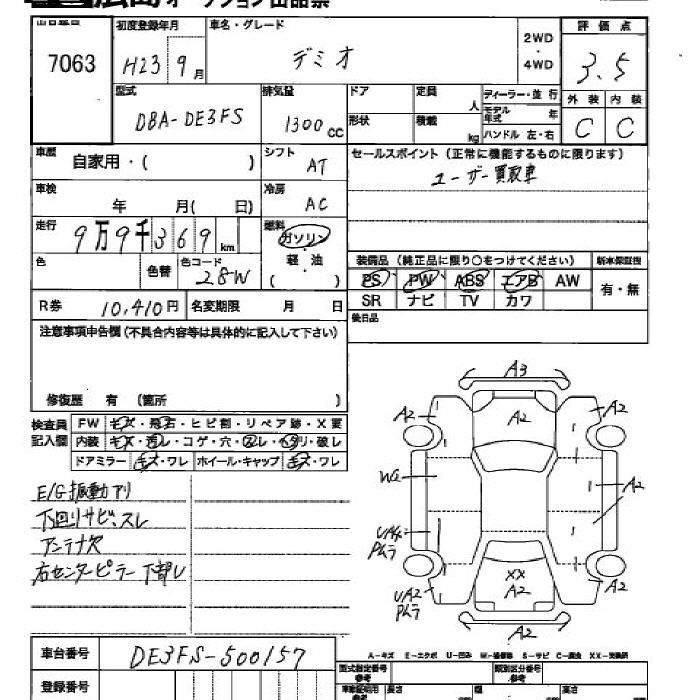 オークション出品票
7063
初度登録年月
H23 9月
車名・グレード
デミオ
2WD
・
4WD
評価点
3.5
型式
DBA-DE3FS
排気量
1300cc
ドア
定員
人
形状
積載
kg
ディーラー・並行
モデル年式
年
ハンドル 左・右
外装
内装
C
C
車歴
自家用・( )
シフト
AT
セールスポイント(正常に機能するものに限ります)
ユーザー買取車
車検
年 月( 日)
冷房
AC
走行
9万9千369km
燃料
ガソリン
・
軽・油
( )
色
色替
色コード
28W
装備品(純正品に限り○をつけてください)
新車保証書
PS PW ABS エアB AW
SR ナビ TV カワ
有・無
R券
10,410円
名変期限
月 日
後日品
注意事項申告欄(不具合内容等は具体的に記入して下さい)
修復歴 有(箇所 )
検査員
記入欄
FW キズ・飛石・ヒビ割・リペア跡・X要
内装 キズ・汚レ・コゲ・穴・スレ・ヘタリ・破レ
ドアミラー キズ・ワレ ホイール・キャップ キズ・ワレ
E/G振動アリ
下回りサビ、スレ
アンテナ欠
右センターピラー下部U
A3
A2
A2
A2
A2
A2
A2
XX
A2
A2
A2
車台番号
DE3FS-500157
登録番号
A-キズ E-エクボ U-凹み W-補修跡 S-サビ C-腐食 XX-交換済
型式指定番号
参考
類別区分番号
参考
長さ
幅
高さ